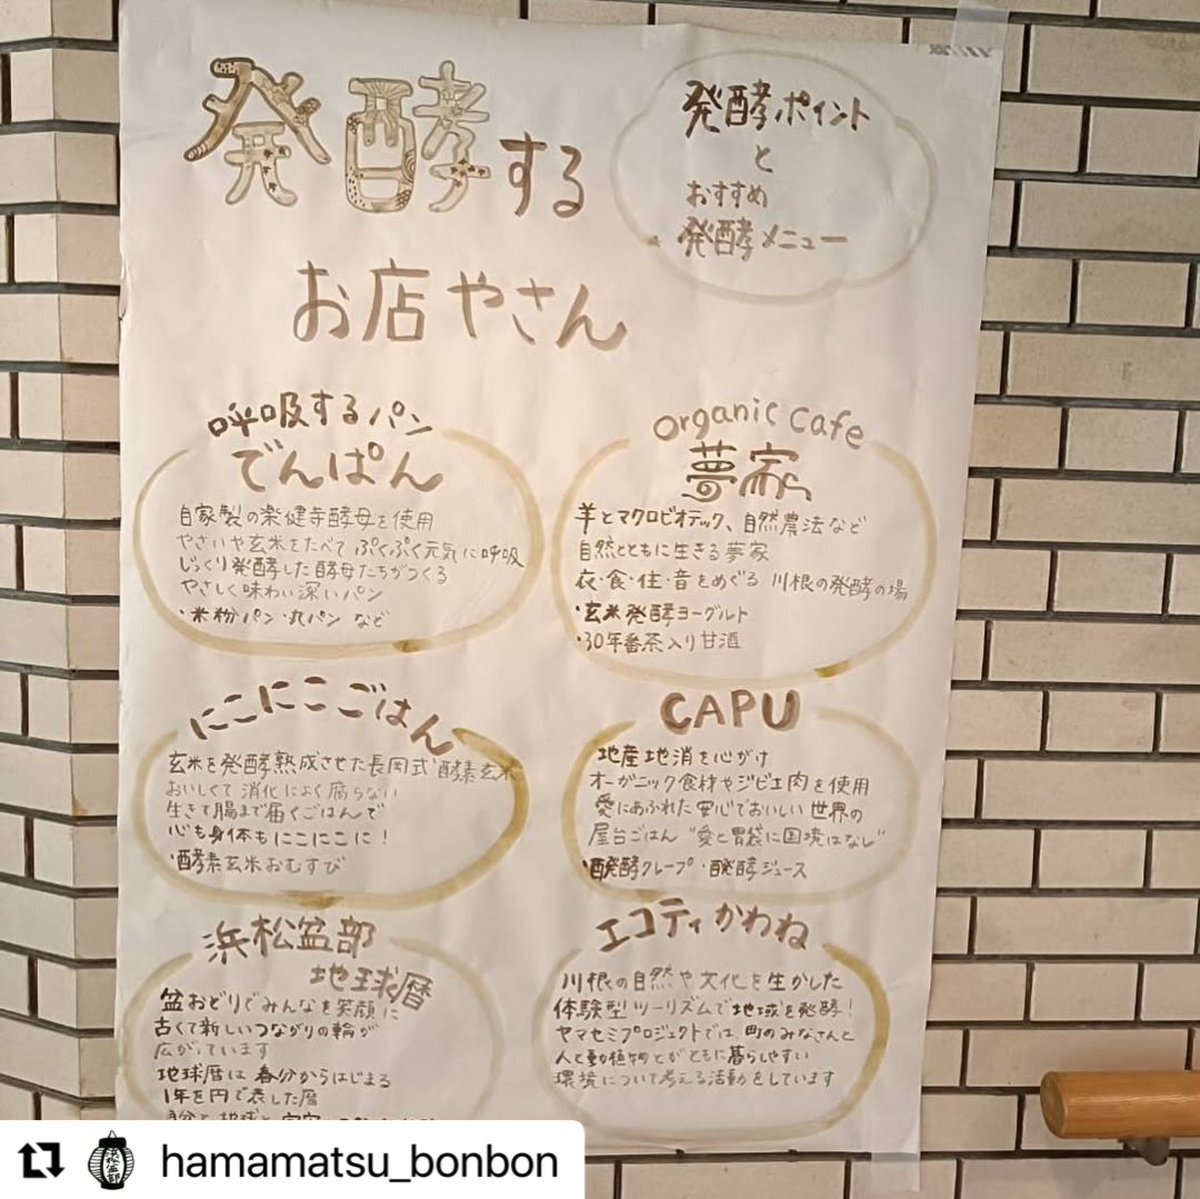 発酵する
お店やさん
発酵ポイント
と
おすすめ
発酵メニュー
呼吸するパン
でんぱん
自家製の楽健寺酵母を使用
やさいや玄米をたべて ぷくぷく元気に呼吸
じっくり発酵した酵母たちがつくる
やさしく味わい深いパン
・米粉パン・丸パン など
organic cafe
夢家
羊とマクロビオテック、自然農法など
自然とともに生きる夢家
衣・食・住・音をめぐる 川根の発酵の場
・玄米発酵ヨーグルト
・30年番茶入り甘酒
にこにこごはん
玄米を発酵熟成させた長岡式酵素玄米
おいしくて消化によく腐らない
生きて腸まで届くごはんで
心も身体もにこにこに!
・酵素玄米おむすび
CAPU
地産地消を心がけ
オーガニック食材やジビエ肉を使用
愛にあふれた安心でおいしい世界の
屋台ごはん "愛と胃袋に国境はなし"
・醗酵クレープ ・醗酵ジュース
浜松盆部
地球暦
盆おどりでみんなを笑顔に
古くて新しいつながりの輪が
広がっています
地球暦は 春分からはじまる
1年を円で表した暦
自分と地球と宇宙
エコティかわね
川根の自然や文化を生かした
体験型ツーリズムで地域を発酵!
ヤマセミプロジェクトでは、町のみなさんと
人と動植物とがともに暮らしやすい
環境について考える活動をしています
浜松盆部
hamamatsu_bonbon